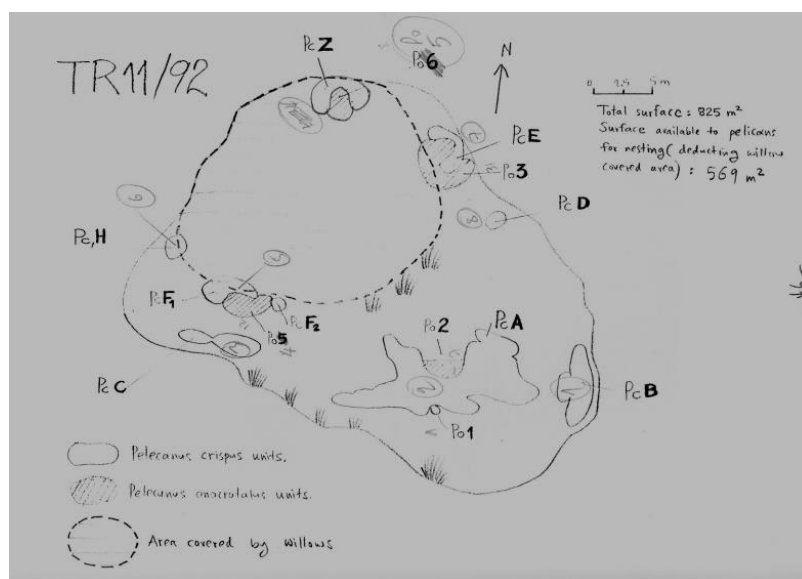 TR11/92
Pc Z
Po6
N
0 2.5 5m
Total surface: 825 m²
Surface available to pelicans
for nesting (deducting willow
covered area): 569 m²
Pc E
Po3
Pc D
8
9
Pc,H
Pc F₁
Po5
Pc F₂
Po2
Pc A
2
1
Pc B
Pc C
Po1
Pelecanus crispus units.
Pelecanus onocrotalus units.
Area covered by willows